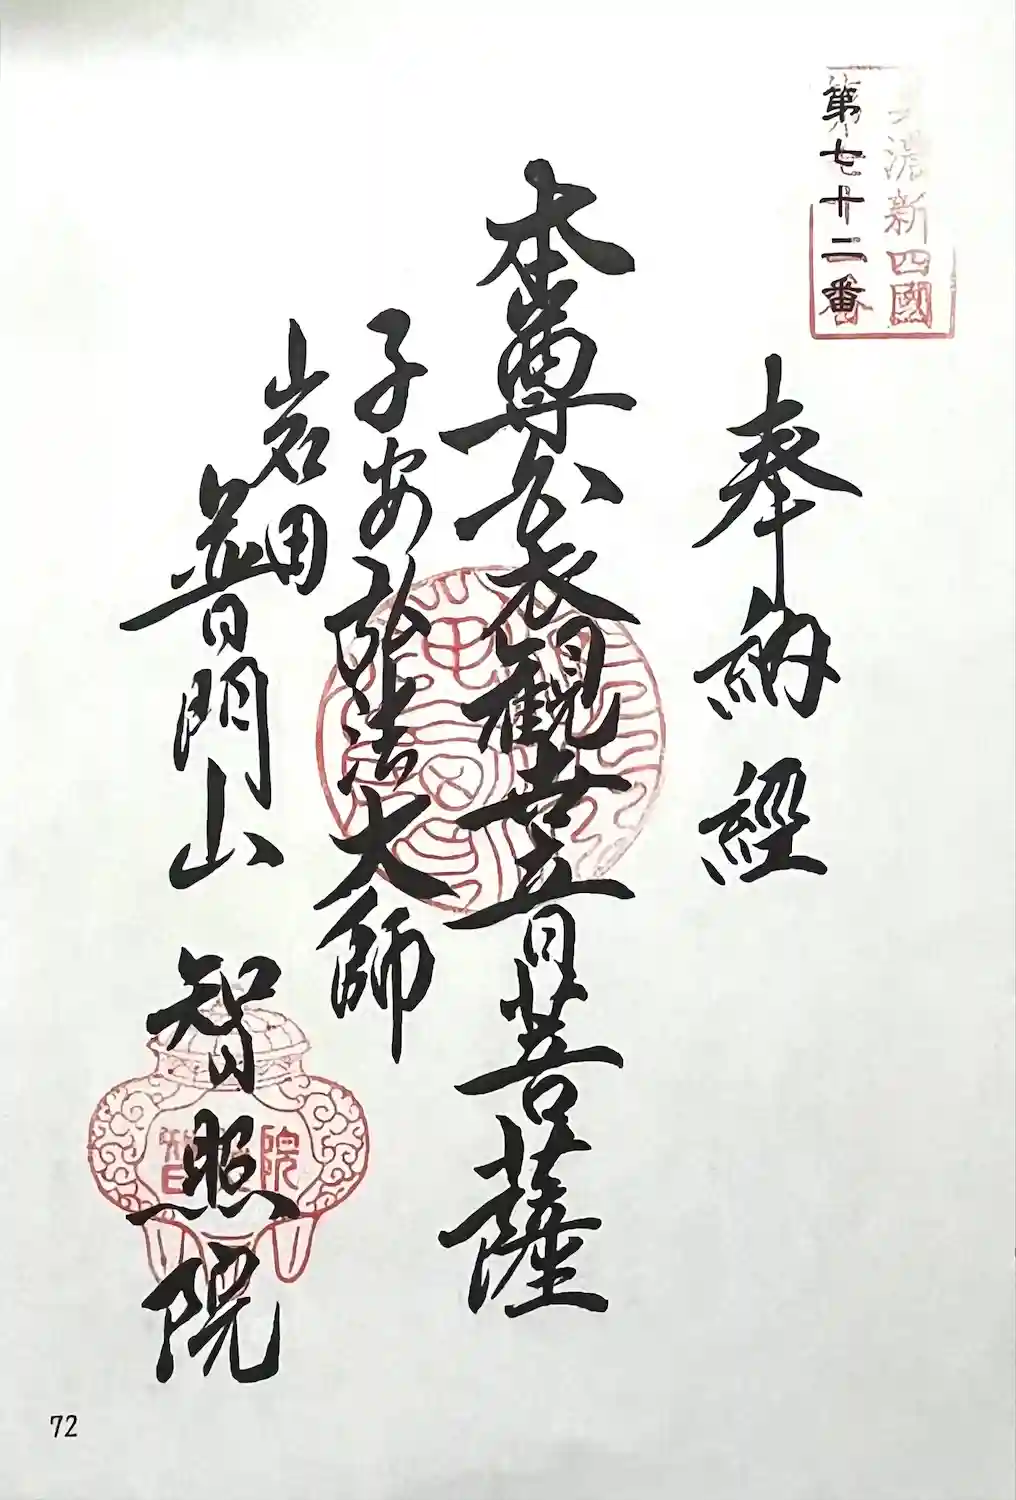 濃新四國
第七十二番
奉納經
本尊白衣観世音菩薩
子安弘法大師
岩田
普門山 智照院
72